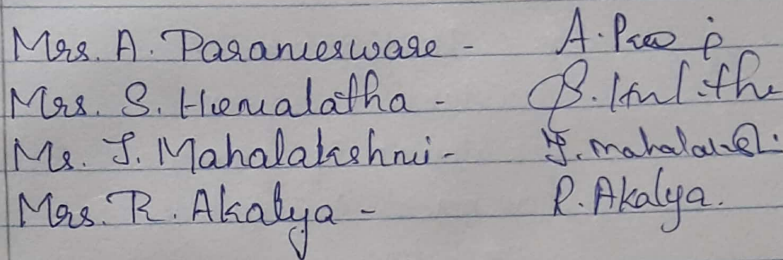 Mrs. A. Parameswari - A.
Mrs. S. Hemalatha - S.
Ms. J. Mahalakshmi - J. mahalak
Mrs. R. Akalya - R. Akalya.